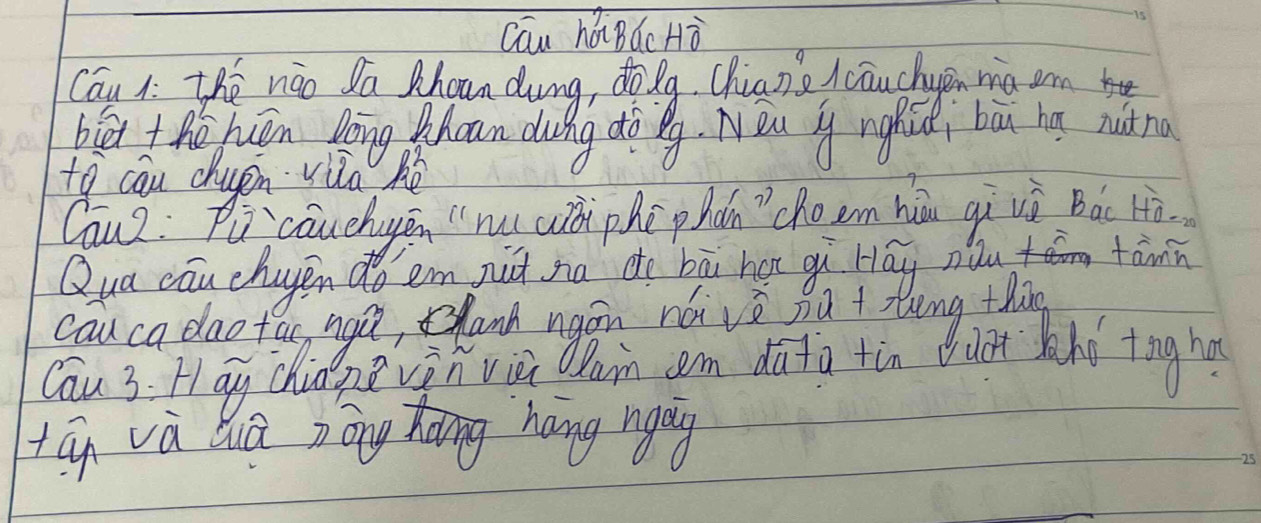 Câu hỏi Bác Hồ
Câu 1: Thế nào là khoan dung, đô lg. Chia sẻ 1 câu chuyện mà em
biết thể hiện lòng khoan dung độ lg. Nêu ý nghĩa, bài họ rút ra
từ câu chuyện vừa kể
Câu 2: Từ câu chuyện "nụ cười phê phán" cho em hiểu gì về Bác Hồ.
Qua câu chuyện đó em rút ra đc bài học gì. Hãy sưu tầm
câu ca dao tục ngữ, danh ngôn nói về sự trung thực
Câu 3: Hãy chia sẻ về n việc làm em đã tự tin vượt khó trg họ
tập và cuộ sống hàng ngày
15
20
25